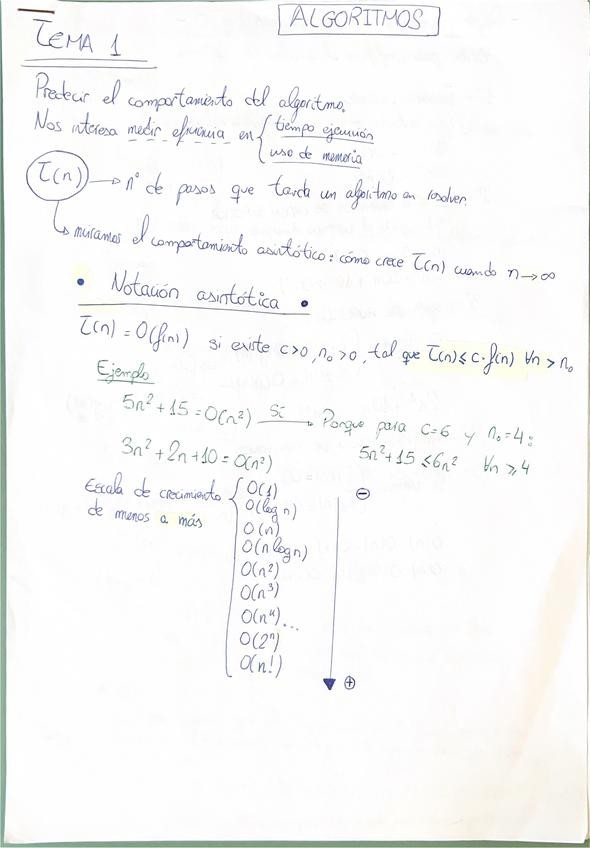 ALGORITMOS
TEMA 1
Predecir el comportamiento del algoritmo.
Nos interesa medir eficiencia en { tiempo ejecución
uso de memoria
T(n) → nº de pasos que tarda un algoritmo en resolver.
↳ miramos el comportamiento asintótico: cómo crece T(n) cuando n → ∞
• Notación asintótica •
T(n) = O(f(n)) si existe c>0, n₀>0, tal que T(n) ≤ c·f(n) ∀n > n₀
Ejemplo
5n² + 15 = O(n²) Sí → Porque para c=6 y n₀=4:
3n² + 2n + 10 = O(n²) 5n² + 15 ≤ 6n² ∀n ≥ 4
Escala de crecimiento
de menos a más
O(1) ⊖
O(log n)
O(n)
O(n log n)
O(n²)
O(n³)
O(n⁴)...
O(2ⁿ)
O(n!) ⊕